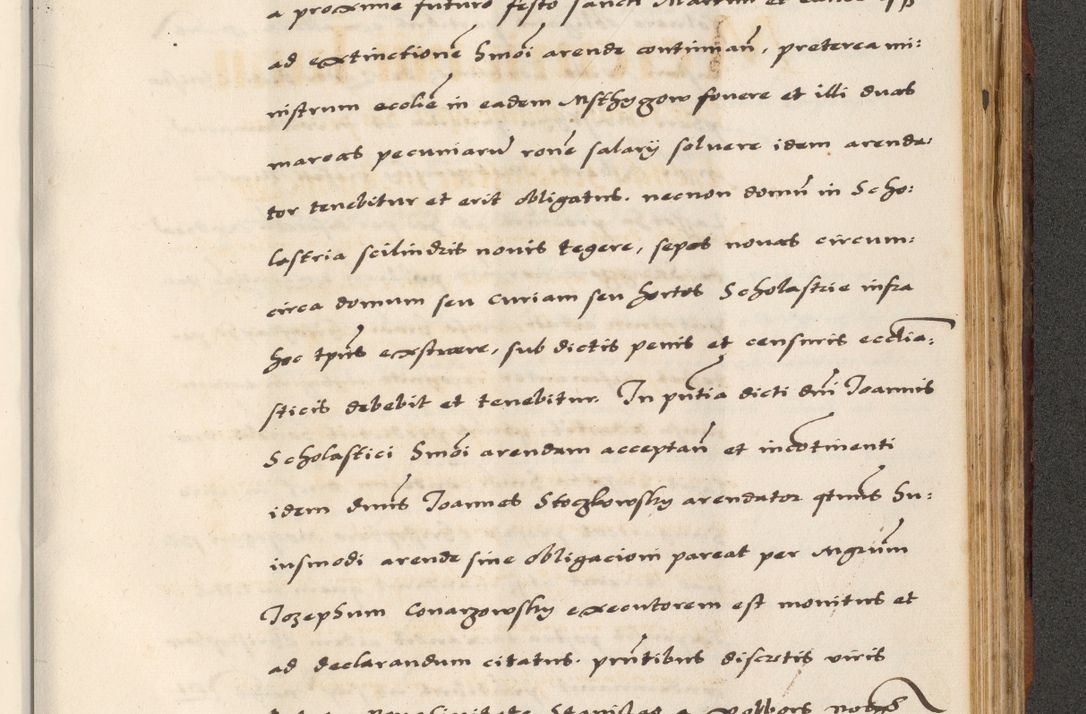 a proxime futuro festo sancti Martini et
ad extinctionē hmōi arende continuan̄, preterea mi:
nistrum ecclīe in eadem Msthygow fovere et illi duas
marcas pecuniarū rōne salarij solvere idem arenda:
tor tenebitur et erit obligatus. necnon domū in Scho:
lastria scilindris novis tegere, sepes novas circum:
circa domum seu curiam seu hortos Scholastrie infra
hoc tp̄us exstruere, sub dictis penis et censuris ecclia:
sticis debebit et tenebitur. In pn̄tia dicti dn̄i Joannis
Scholastici hmōi arendam acceptan̄ et incōtinenti
idem dn̄us Joannes Stoczkowsky arendator qtn̄us hu:
iusmodi arende sine obligacioni pareat per Mgrum
Jozephum Conarzowsky executorem est monitus et
ad declarandum citatus. pn̄tibus discretis viris
Stanislao a